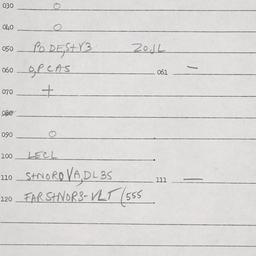 030 O
040 O
050 PO DE,S+V3 20JL
060 O,PCAS 061 —
070 +
080
090 O
100 LECL
110 S+NORD VA,DL3S 111 —
120 FAR S+NOR3-VLT (555